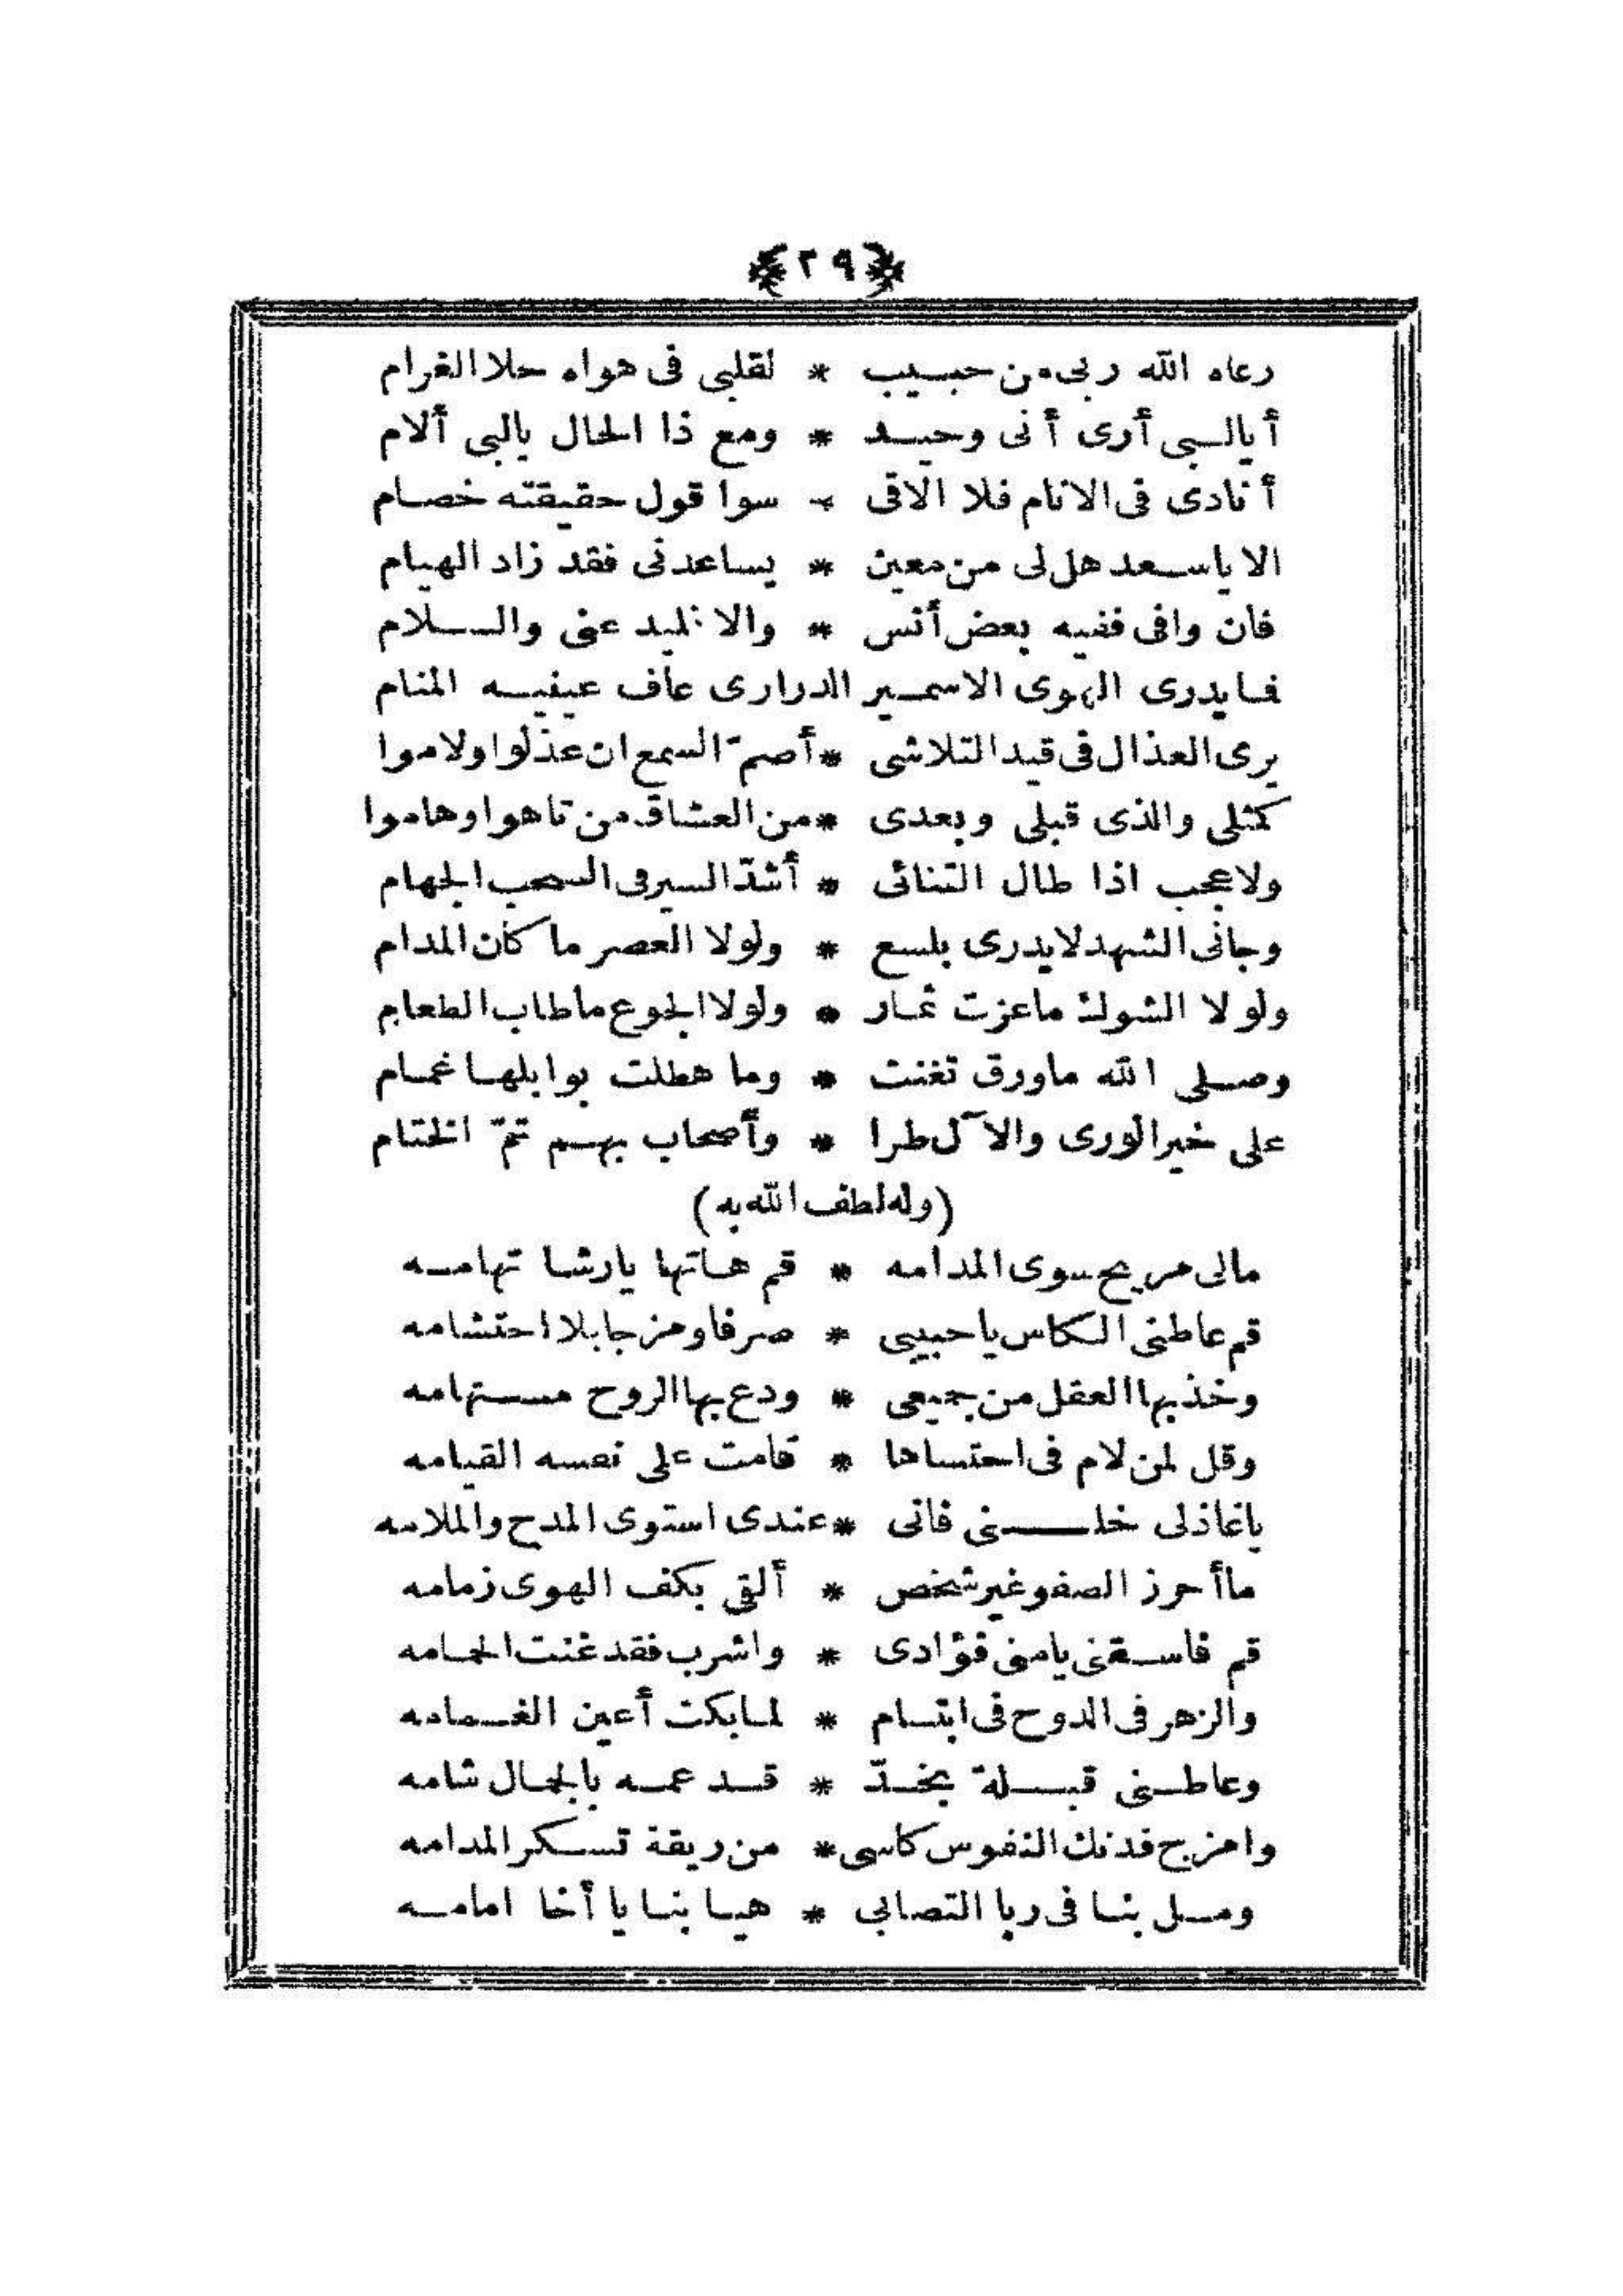 ﴿٢٩﴾
رعاه الله ربى من حبيب * لقلبى فى هواه حلا الغرام
أيالبى أرى أنى وحيد * ومع ذا الحال يالبى ألام
أنادى فى الانام فلا الاقى * سوا قول حقيقته خصام
الا ياسعد هل لى من معين * يساعدنى فقد زاد الهيام
فان وافى ففيه بعض أنس * والا عنى والسلام
فمايدرى الهوى الاسمير الدرارى عاف عينيه المنام
يرى العذال فى قيد التلاشى * أصمّ السمع ان عذلوا ولاموا
كمثلى والذى قبلى وبعدى * من العشاق من تاهوا وهاموا
ولاعجب اذا طال التنائى * أشدّ السير فى السحب الجهام
وجانى الشهد لايدرى بلسع * ولولا العصر ما كان المدام
ولولا الشوك ماعزت ثمار * ولولا الجوع ماطاب الطعام
وصلى الله ماورق تغنت * وما هطلت بوابلها غمام
على خير الورى والآل طرا * وأصحاب بهم تمّ الختام
(وله لطف الله به)
مالى مريح سوى المدامه * قم هاتها يارشا تهامه
قم عاطنى الكاس ياحبيبى * صرفا ومزجا بلا احتشامه
وخذ بها العقل من جميعى * ودع بها الروح مستهامه
وقل لمن لام فى احتساها * قامت على نفسه القيامه
ياعاذلى خلنى فانى * عندى استوى المدح والملامه
ماأحرز الصفو غير شخص * ألقى بكف الهوى زمامه
قم فاسقنى يامنى فؤادى * واشرب فقد غنت الحمامه
والزهر فى الدوح فى ابتسام * لمابكت أعين الغمامه
وعاطنى قبلة بخدّ * قد عمه بالجمال شامه
وامزج فدتك النفوس كاسى * من ريقة تسكر المدامه
ومل بنا فى ربا التصابى * هيا بنا يا أخا امامه